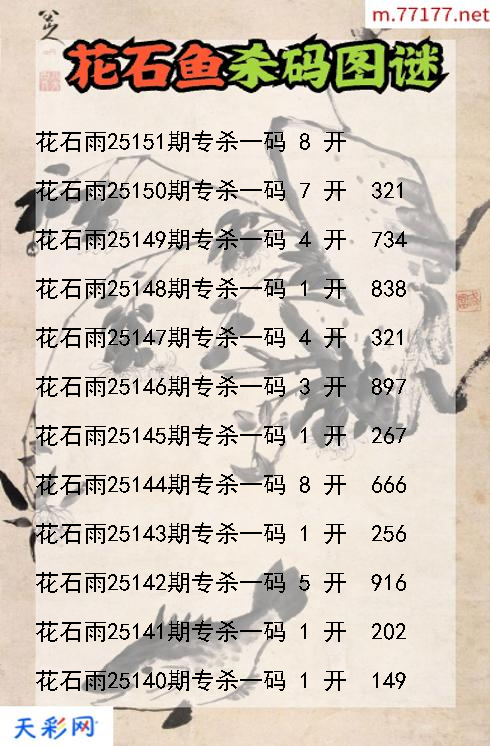 m.77177.net
花石鱼杀码图谜
花石雨25151期专杀一码 8 开
花石雨25150期专杀一码 7 开 321
花石雨25149期专杀一码 4 开 734
花石雨25148期专杀一码 1 开 838
花石雨25147期专杀一码 4 开 321
花石雨25146期专杀一码 3 开 897
花石雨25145期专杀一码 1 开 267
花石雨25144期专杀一码 8 开 666
花石雨25143期专杀一码 1 开 256
花石雨25142期专杀一码 5 开 916
花石雨25141期专杀一码 1 开 202
花石雨25140期专杀一码 1 开 149
天彩网